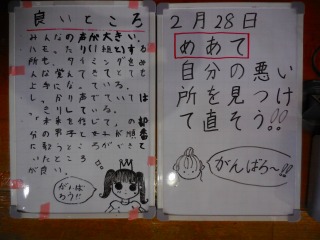 良いところ
みんなの声が大きい。
ハモったり(1組と)する
所も、タイミングをみ
んな覚えてきてとても
上手になっている。
しっかり声でていては
きりしている。
「未来を信じて」の部
分の男子と女子が順番
に歌うところができて
いたところ
が良い。
がんば
ろう!!
2月28日
めあて
自分の悪い
所を見つけ
て直そう!!
がんばろ〜!!